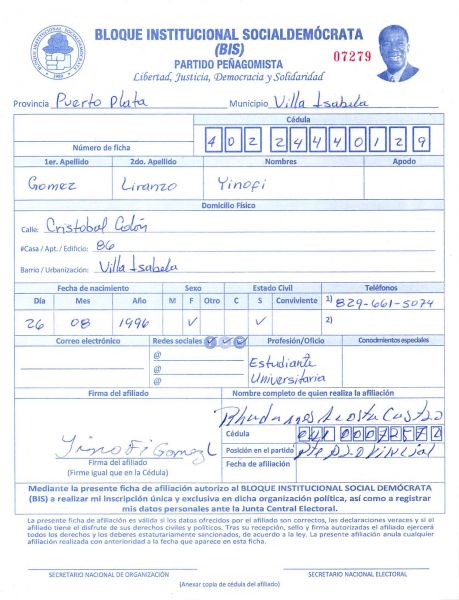 BLOQUE INSTITUCIONAL SOCIALDEMÓCRATA
(BIS)
PARTIDO PEÑAGOMISTA
07279
Libertad, Justicia, Democracia y Solidaridad
Provincia Puerto Plata Municipio Villa Isabela
Cédula
Número de ficha 402 2444012 9
1er. Apellido 2do. Apellido Nombres Apodo
Gomez Liranzo Yinofi
Domicilio Físico
Calle: Cristobal Colón
#Casa / Apt. / Edificio: 86
Barrio / Urbanización: Villa Isabela
Fecha de nacimiento Sexo Estado Civil Teléfonos
Día Mes Año M F Otro C S Conviviente 1) 829-661-5074
26 08 1996 ✓ ✓ 2)
Correo electrónico Redes sociales Profesión/Oficio Conocimientos especiales
@ Estudiante
@ Universitaria
@
Firma del afiliado Nombre completo de quien realiza la afiliación
Acosta Castro
Cédula
Yinofi Gomez L Posición en el partido Pte Provincial
Firma del afiliado Fecha de afiliación
(Firme igual que en la Cédula)
Mediante la presente ficha de afiliación autorizo al BLOQUE INSTITUCIONAL SOCIAL DEMÓCRATA
(BIS) a realizar mi inscripción única y exclusiva en dicha organización política, así como a registrar
mis datos personales ante la Junta Central Electoral.
La presente ficha de afiliación es válida si los datos ofrecidos por el afiliado son correctos, las declaraciones veraces y si el
afiliado tiene el disfrute de sus derechos civiles y políticos. Tras su recepción, sello y firma autorizada el afiliado ejercerá
todos los derechos y los deberes estatutariamente sancionados, de acuerdo a la ley. La presente afiliación anula cualquier
afiliación realizada con anterioridad a la fecha que aparece en esta ficha.
SECRETARIO NACIONAL DE ORGANIZACIÓN SECRETARIO NACIONAL ELECTORAL
(Anexar copia de cédula del afiliado)